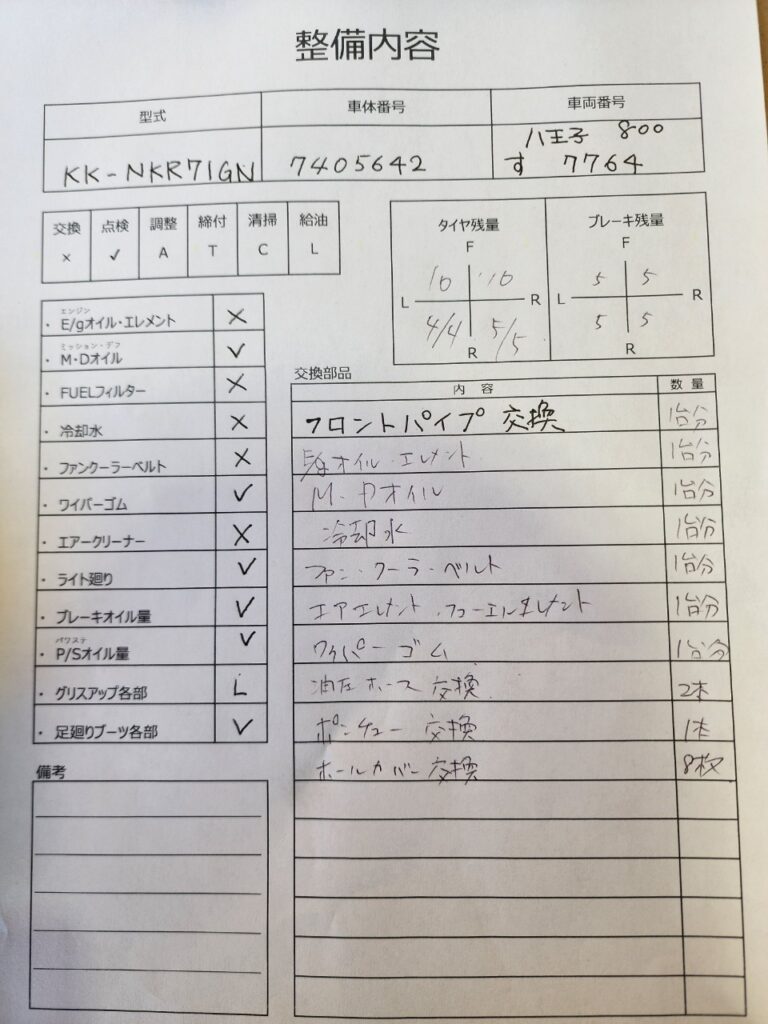 整備内容
型式 車体番号 車両番号
KK-NKR71GN 7405642 八王子 800
す 7764
交換 点検 調整 締付 清掃 給油
× ✓ A T C L
タイヤ残量 ブレーキ残量
F F
10 10 5 5
L R L R
4/4 5/5 5 5
R R
エンジン
・E/gオイル・エレメント ×
ミッション・デフ
・M・Dオイル ✓
・FUELフィルター ×
・冷却水 ×
・ファンクーラーベルト ×
・ワイパーゴム ✓
・エアークリーナー ×
・ライト廻り ✓
・ブレーキオイル量 ✓
パワステ
・P/Sオイル量 ✓
・グリスアップ各部 L
・足廻りブーツ各部 ✓
備考
交換部品
内容 数量
フロントパイプ 交換 1台分
E/gオイル・エレメント 1台分
M・Dオイル 1台分
冷却水 1台分
ファン・クーラ・ベルト 1台分
エアエレメント・フューエルエレメント 1台分
ワイパーゴム 1台分
油圧ホース 交換 2本
交換 1本
ホールカバー 交換 8枚